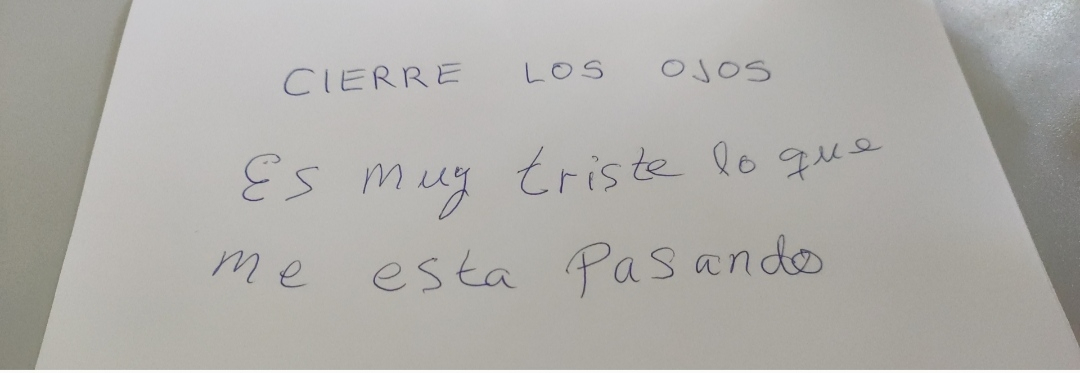 CIERRE LOS OJOS
Es muy triste lo que
me esta Pasando